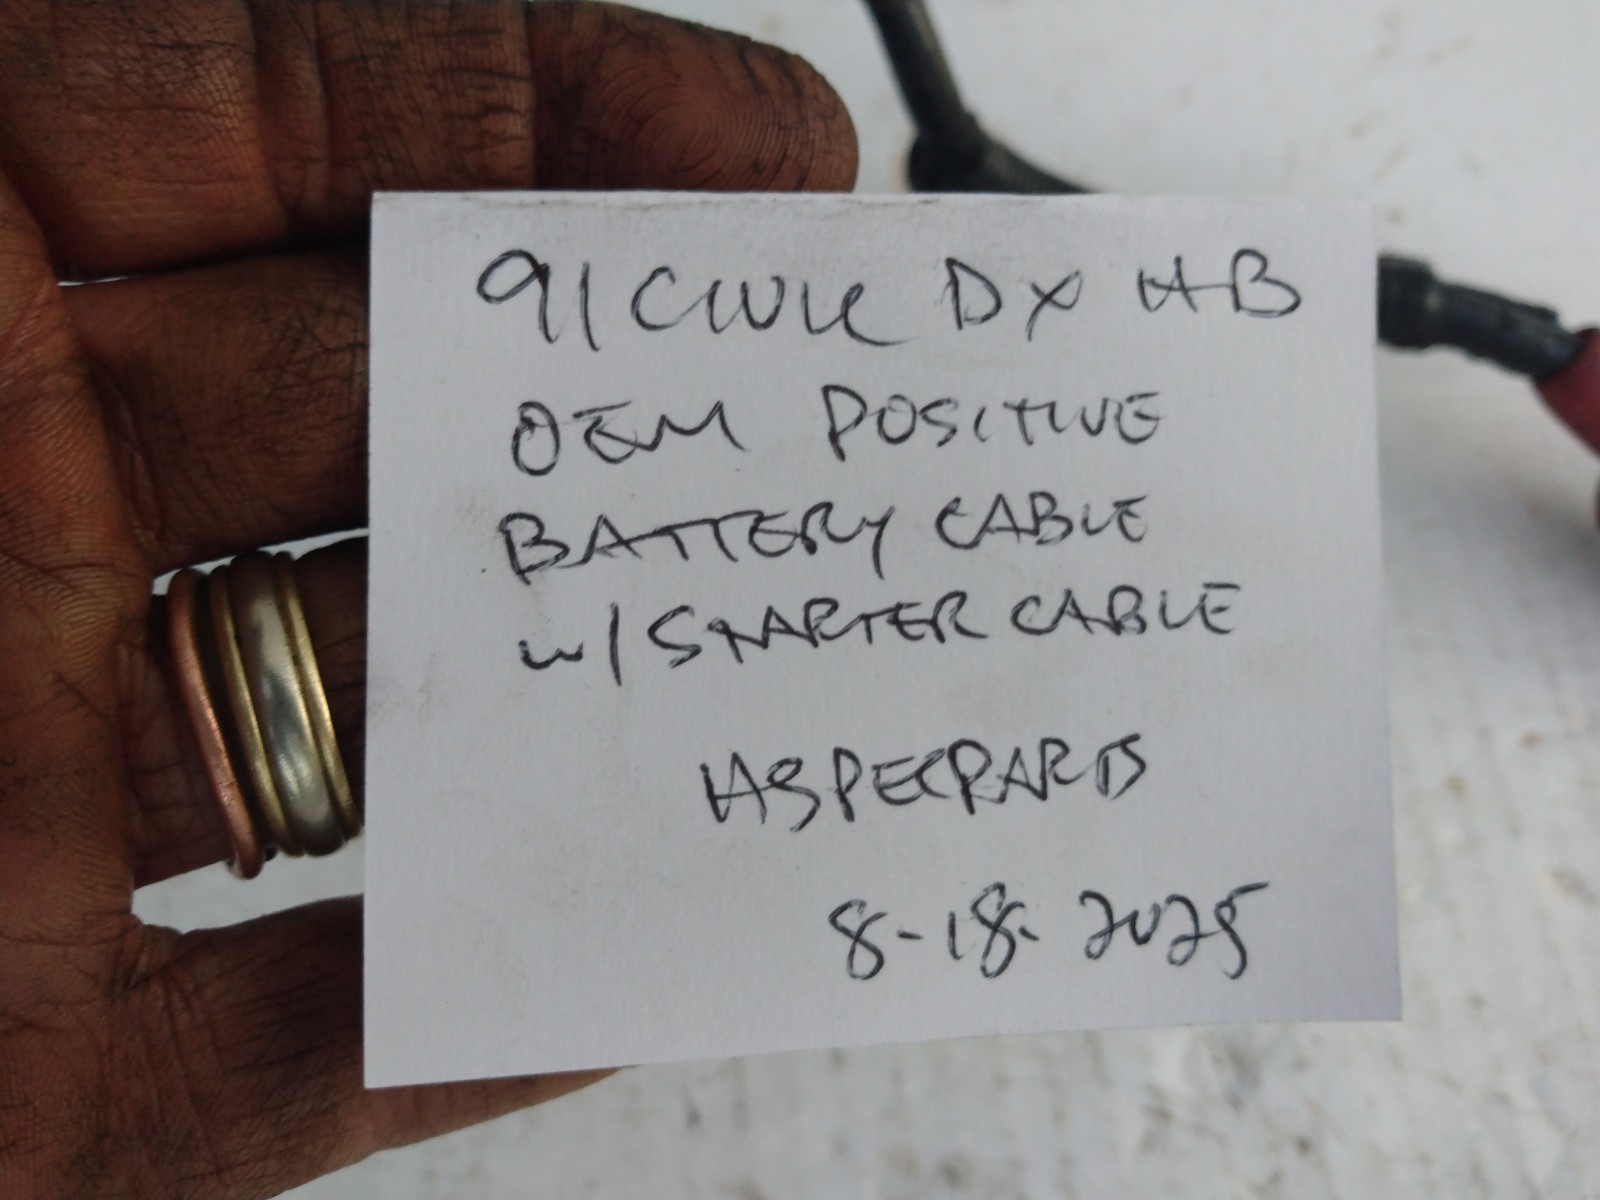 91 CIVIC DX HB
OEM POSITIVE
BATTERY CABLE
w/ STARTER CABLE
HSPECPARTS
8-18-2025